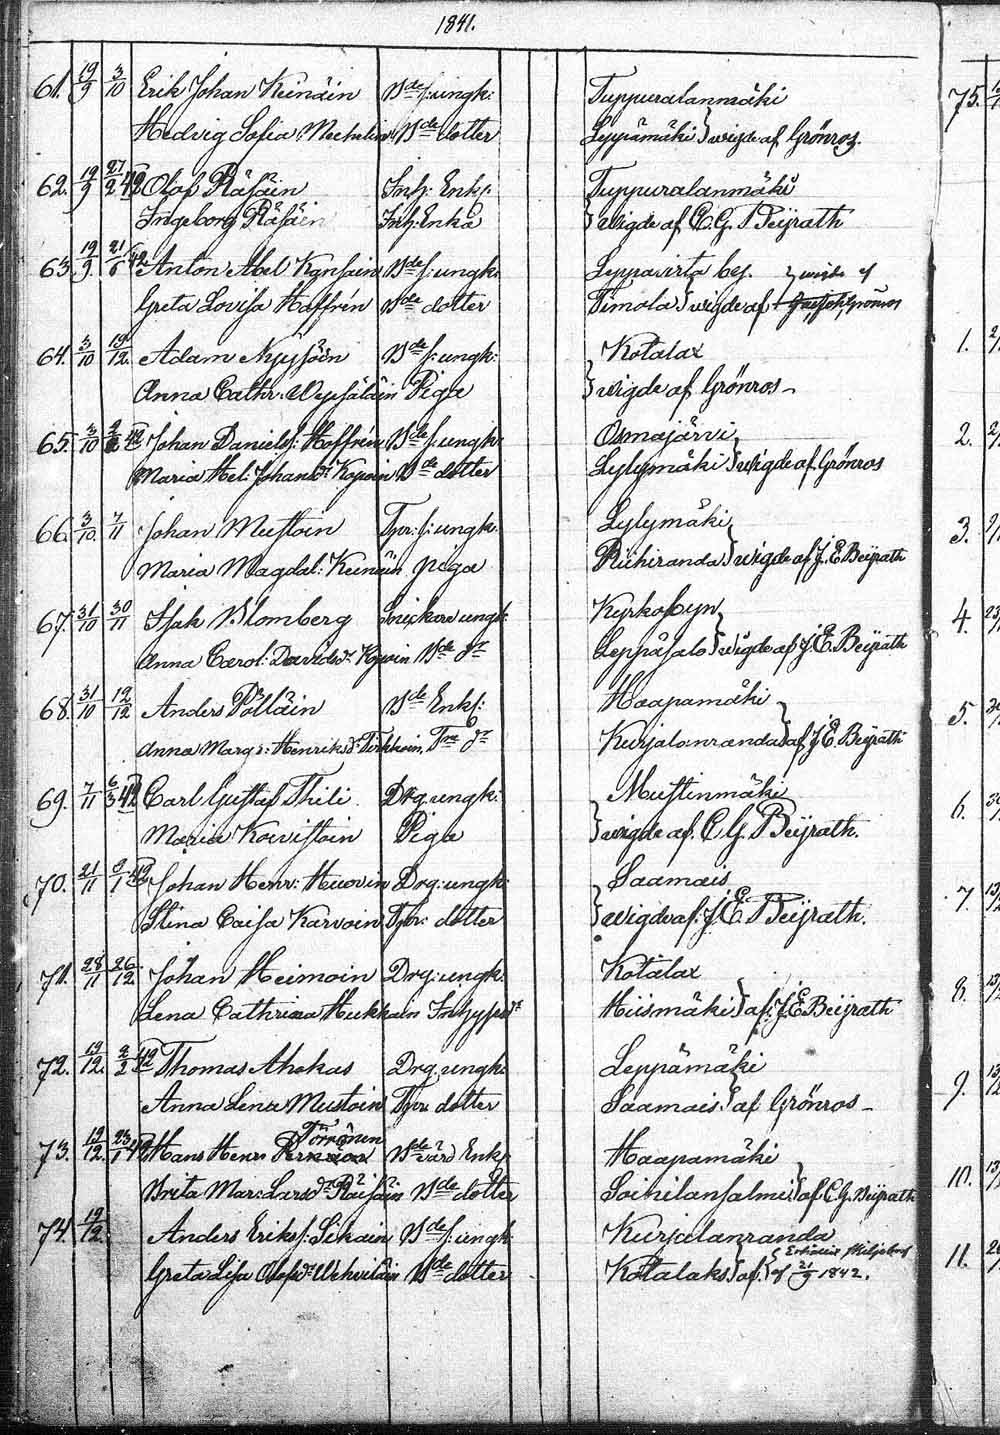 1841.
61. 19/9 3/10 Erik Johan Keinäin Bde s: ungk: Tuppuralanmäki
Hedvig Sofia Mechelin Bde dotter Leppämäki } wigde af Grönros.
62. 19/9 27/2 42 Olof Räsäin Inh: Enkl. Tuppuralanmäki
Ingeborg Räsäin Inh: Enka } wigde af C. G. Beijrath
63. 19/9 21/6 42 Anton Abel Kansain Bde s: ungk. Leppävirta by. } wigde af
Greta Lovisa Hoffrén Bde dotter Timola } wigde af Grönros
64. 3/10 19/12. Adam Nyyssöin Bde s: ungk: Kotalax
Anna Cathr: Piga } wigde af Grönros –
65. 3/10 42 Johan Daniels: Hoffrén Bde s: ungk: Osmajärvi
Maria Hel: Johansdr Koponen Bde dotter Lylymäki } wigde af Grönros
66. 3/10. 7/11 Johan Mustoin Tor: s: ungk. Lylymäki
Maria Magdal: Keinäin piga Riihiranda } wigde af J. E. Beijrath
67. 31/10 30/11 Isak Blomberg ungk: Kyrkobyn
Anna Carol: Davidsdr Bde dr Leppäsalo } wigde af J. E. Beijrath
68. 31/10 12/12 Anders Pölläin Bde Enkl: Haapamäki
Anna Margr: Henriksdr Tirkkoin, dr Kurjalanranda } af J. E. Beijrath
69. 7/11 6/3 42 Carl Gustaf Thili Drg. ungk: Mustinmäki
Maria Koivistoin Piga } wigde af C. G. Beijrath.
70. 21/11 9/1 42 Johan Henr: Huovin Drg: ungk: Saamais
Stina Caisa Karvoin Tor: dotter } wigde af: J. E. Beijrath.
71. 28/11 26/12. Johan Heimoin Drg: ungk: Kotalax
Lena Cathrina Hukkain Inhypsdr Hiismäki } af: J. E. Beijrath
72. 19/12. 2/2 42 Thomas Ahokas Drg. ungk: Leppämäki
Anna Lena Mustoin Tor dotter Saamais } af Grönros –
Törrönen
73. 19/12. 23/1 42 Hans Henr Bde Enkl: Haapamäki
Brita Mar: Larsdr Räisäin Bde dotter Soinilansalmi } af C. G. Beijrath
74. 19/12. Anders Eriks: Sikain Bde s: ungk: Kurjalanranda
Greta Lisa Olofsdr Wehviläin Bde dotter Kotalaks } af. } af 21/9 1842.
75.
1.
2.
3.
4.
5.
6.
7.
8.
9.
10.
11.